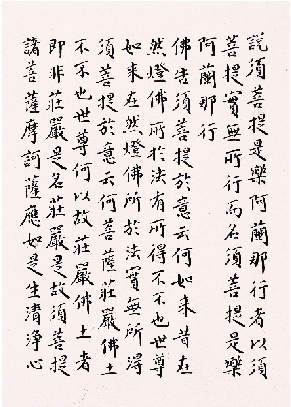 說須菩提是樂阿蘭那行者以須
菩提實無所行而名須菩提是樂
阿蘭那行
佛告須菩提於意云何如來昔在
然燈佛所於法有所得不不也世尊
如來在然燈佛所於法實無所得
須菩提於意云何菩薩莊嚴佛土
不不也世尊何以故莊嚴佛土者
即非莊嚴是名莊嚴是故須菩提
諸菩薩摩訶薩應如是生清淨心